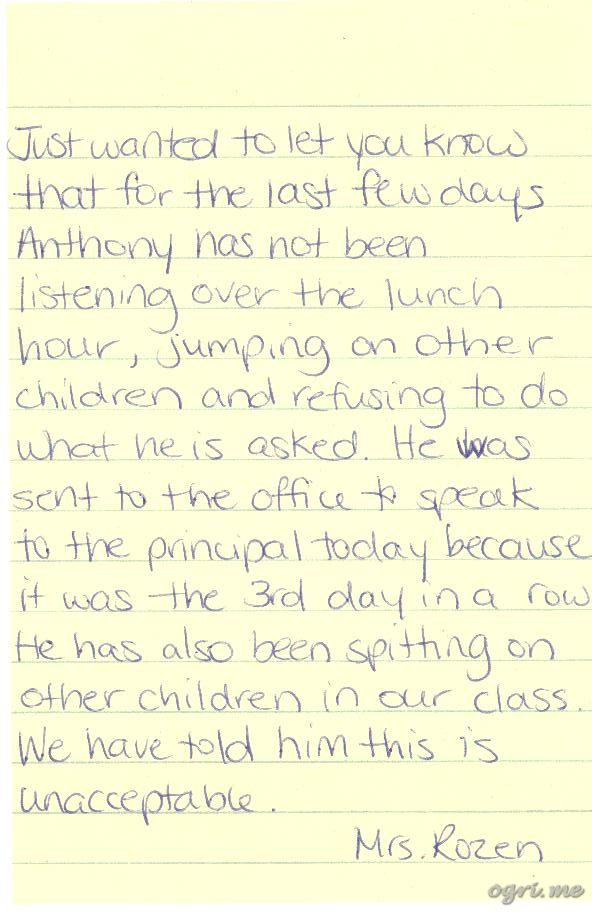 Just wanted to let you know
that for the last few days
Anthony has not been
listening over the lunch
hour, jumping on other
children and refusing to do
what he is asked. He was
sent to the office to speak
to the principal today because
it was the 3rd day in a row
He has also been spitting on
other children in our class.
We have told him this is
unacceptable.
Mrs. Rozen
ogri.me